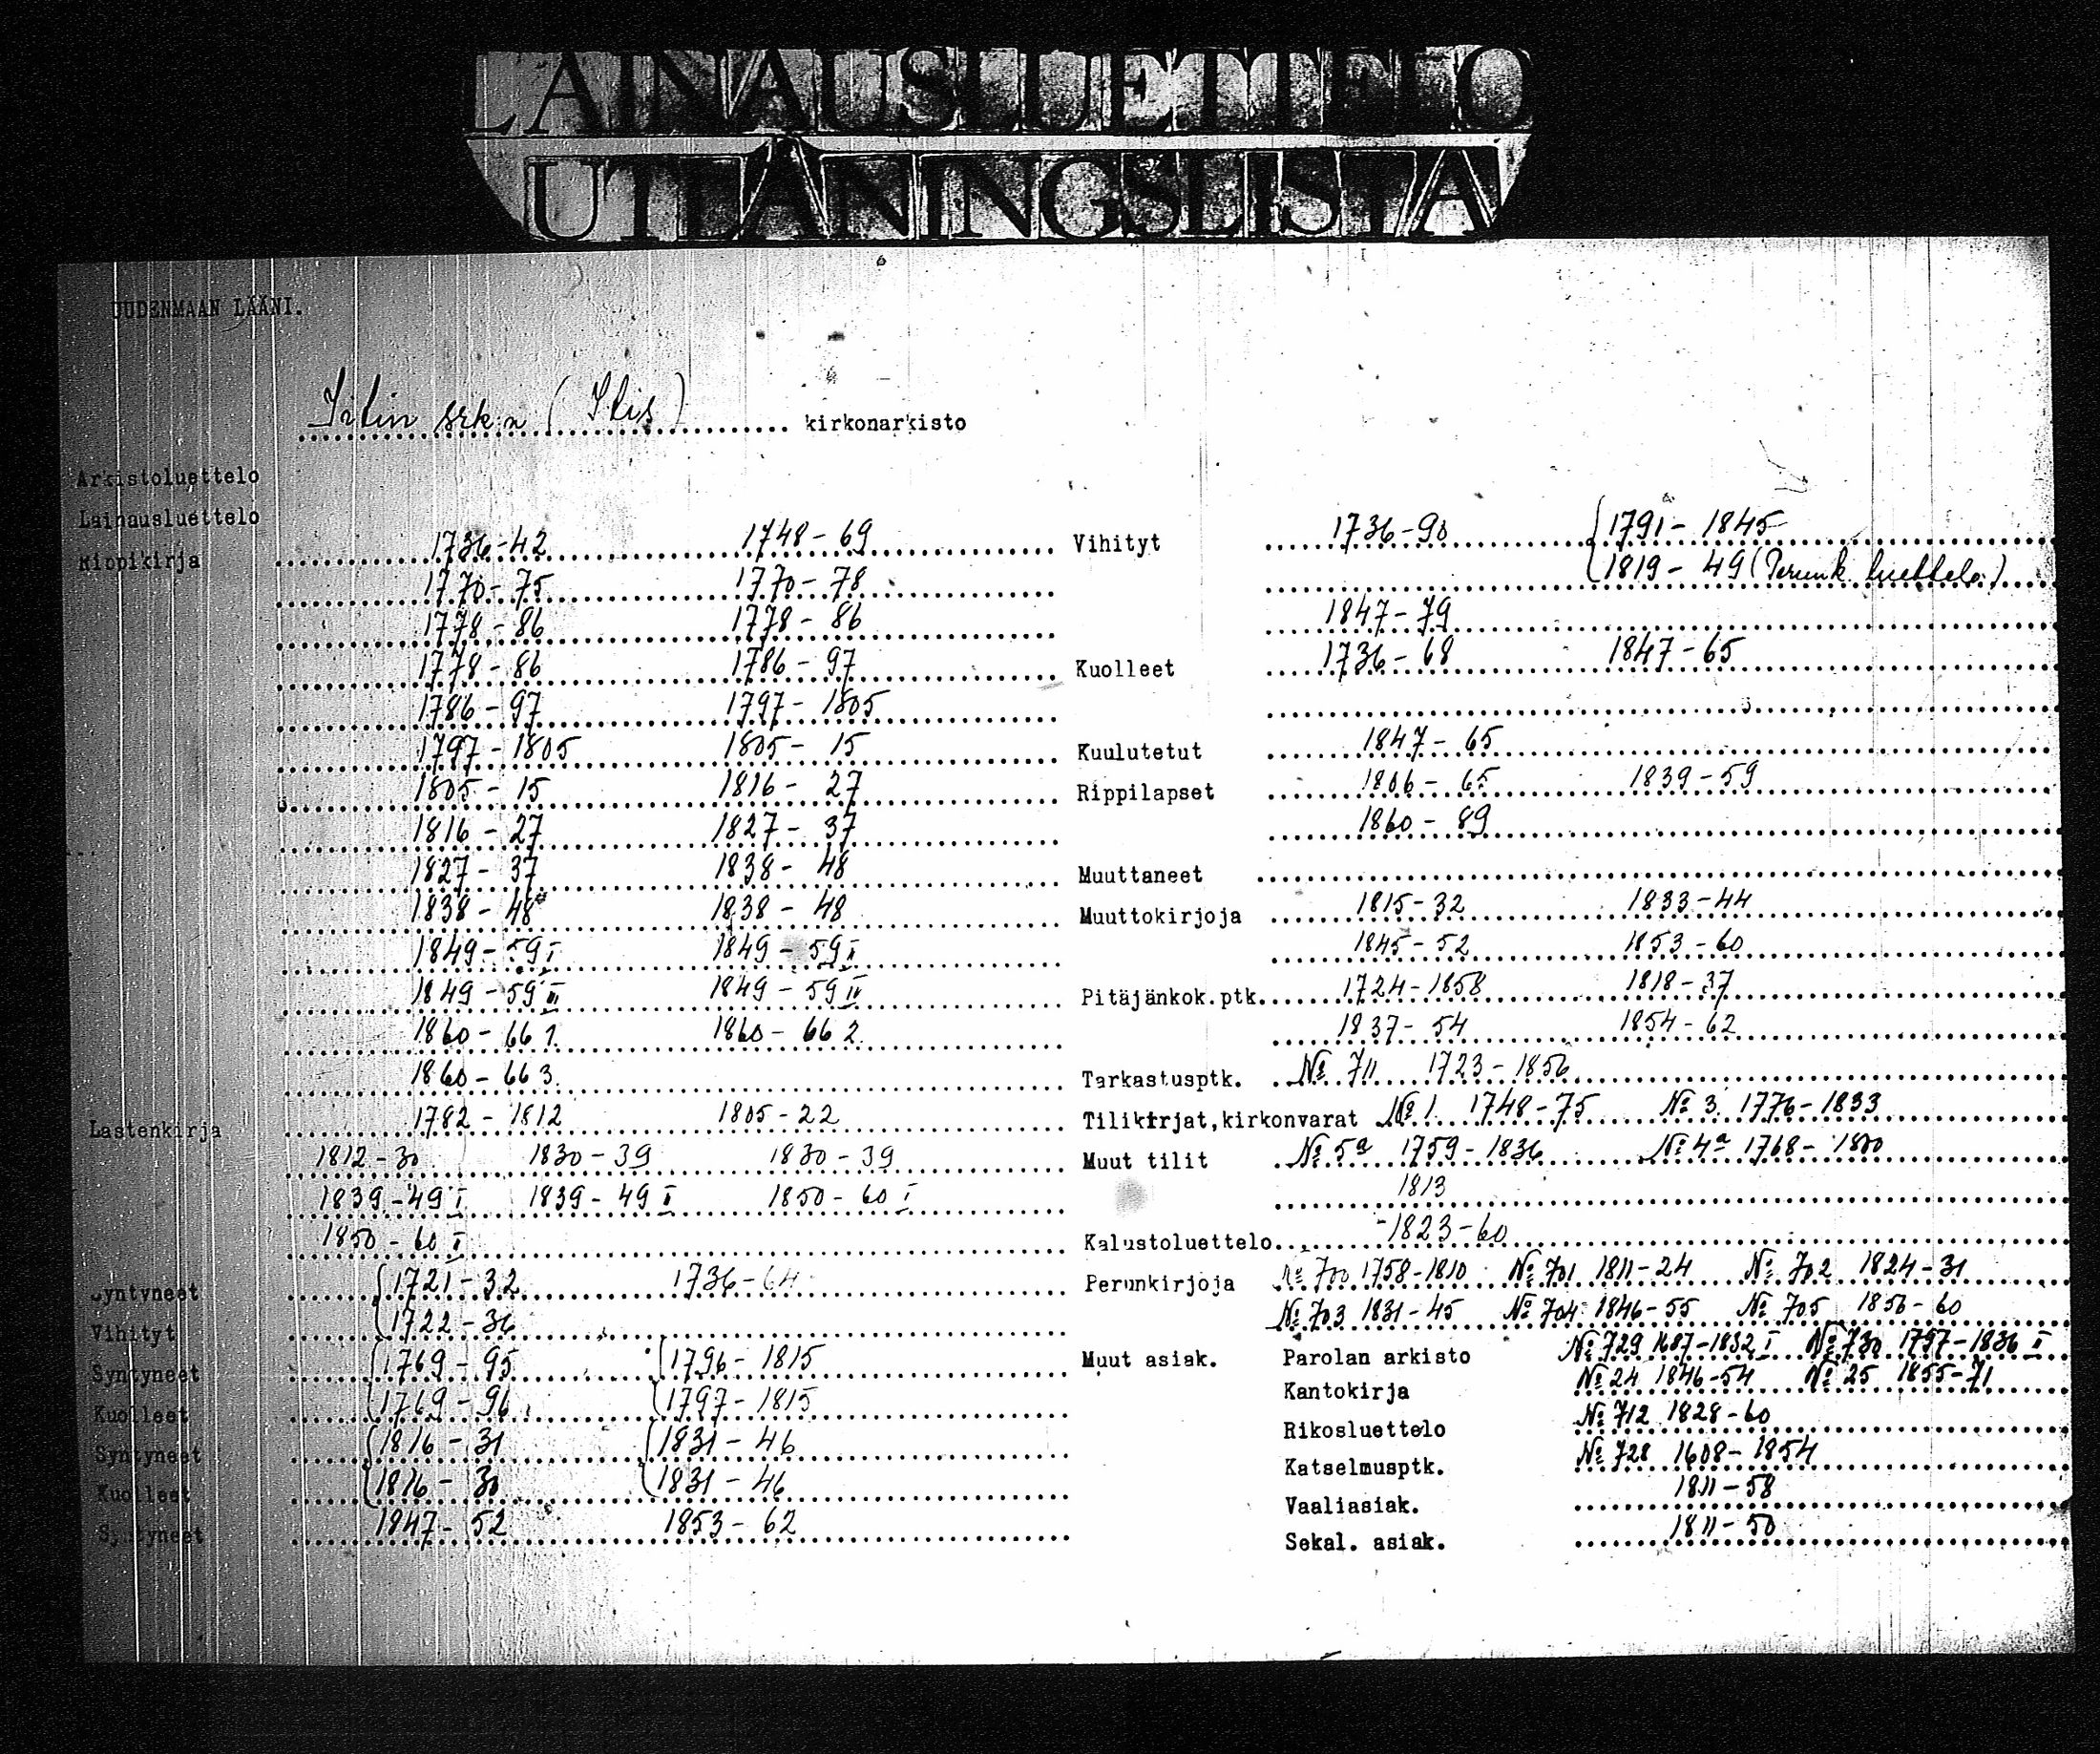 LAINAUSLUETTELO
UTLÅNINGSLISTA
UUDENMAAN LÄÄNI.
srk:n kirkonarkisto
Arkistoluettelo
Lainausluettelo
Rippikirja 1736-42 1748-69
1770-75 1770-78
1778-86 1778-86
1778-86 1786-97
1786-97 1797-1805
1797-1805 1805-15
1805-15 1816-27
1816-27 1827-37
1827-37 1838-48
1838-48 1838-48
1849-59 I 1849-59 II
1849-59 III 1849-59 IV
1860-66 1. 1860-66 2.
1860-66 3.
Lastenkirja 1782-1812 1805-22
1812-30 1830-39 1830-39
1839-49 I 1839-49 II 1850-60 I
1850-60 II
Syntyneet {1721-32 1736-64
Vihityt {1722-36
Syntyneet {1769-95 {1796-1815
Kuolleet {1769-96 {1797-1815
Syntyneet {1816-31 {1831-46
Kuolleet {1816-30 {1831-46
Syntyneet 1847-52 1853-62
Vihityt 1736-90 {1791-1845
{1819-49 (Perunk. luettelo)
1847-79
Kuolleet 1736-68 1847-65
Kuulutetut 1847-65
Rippilapset 1806-65 1839-59
1860-89
Muuttaneet
Muuttokirjoja 1815-32 1833-44
1845-52 1853-60
Pitäjänkok.ptk. 1724-1858 1818-37
1837-54 1854-62
Tarkastusptk. № 711 1723-1856
Tilikirjat,kirkonvarat № 1. 1748-75 № 3. 1776-1833
Muut tilit № 5a 1759-1836 № 4a 1768-1800
1813
Kalustoluettelo 1823-60
Perunkirjoja № 700 1758-1810 № 701 1811-24 № 702 1824-31
№ 703 1831-45 № 704 1846-55 № 705 1856-60
Muut asiak. Parolan arkisto № 729 1687-1832 I № 730 1797-1836 II
Kantokirja № 24 1846-54 № 25 1855-71
Rikosluettelo № 712 1828-60
Katselmusptk. № 728 1608-1854
Vaaliasiak. 1811-58
Sekal. asiak. 1811-50